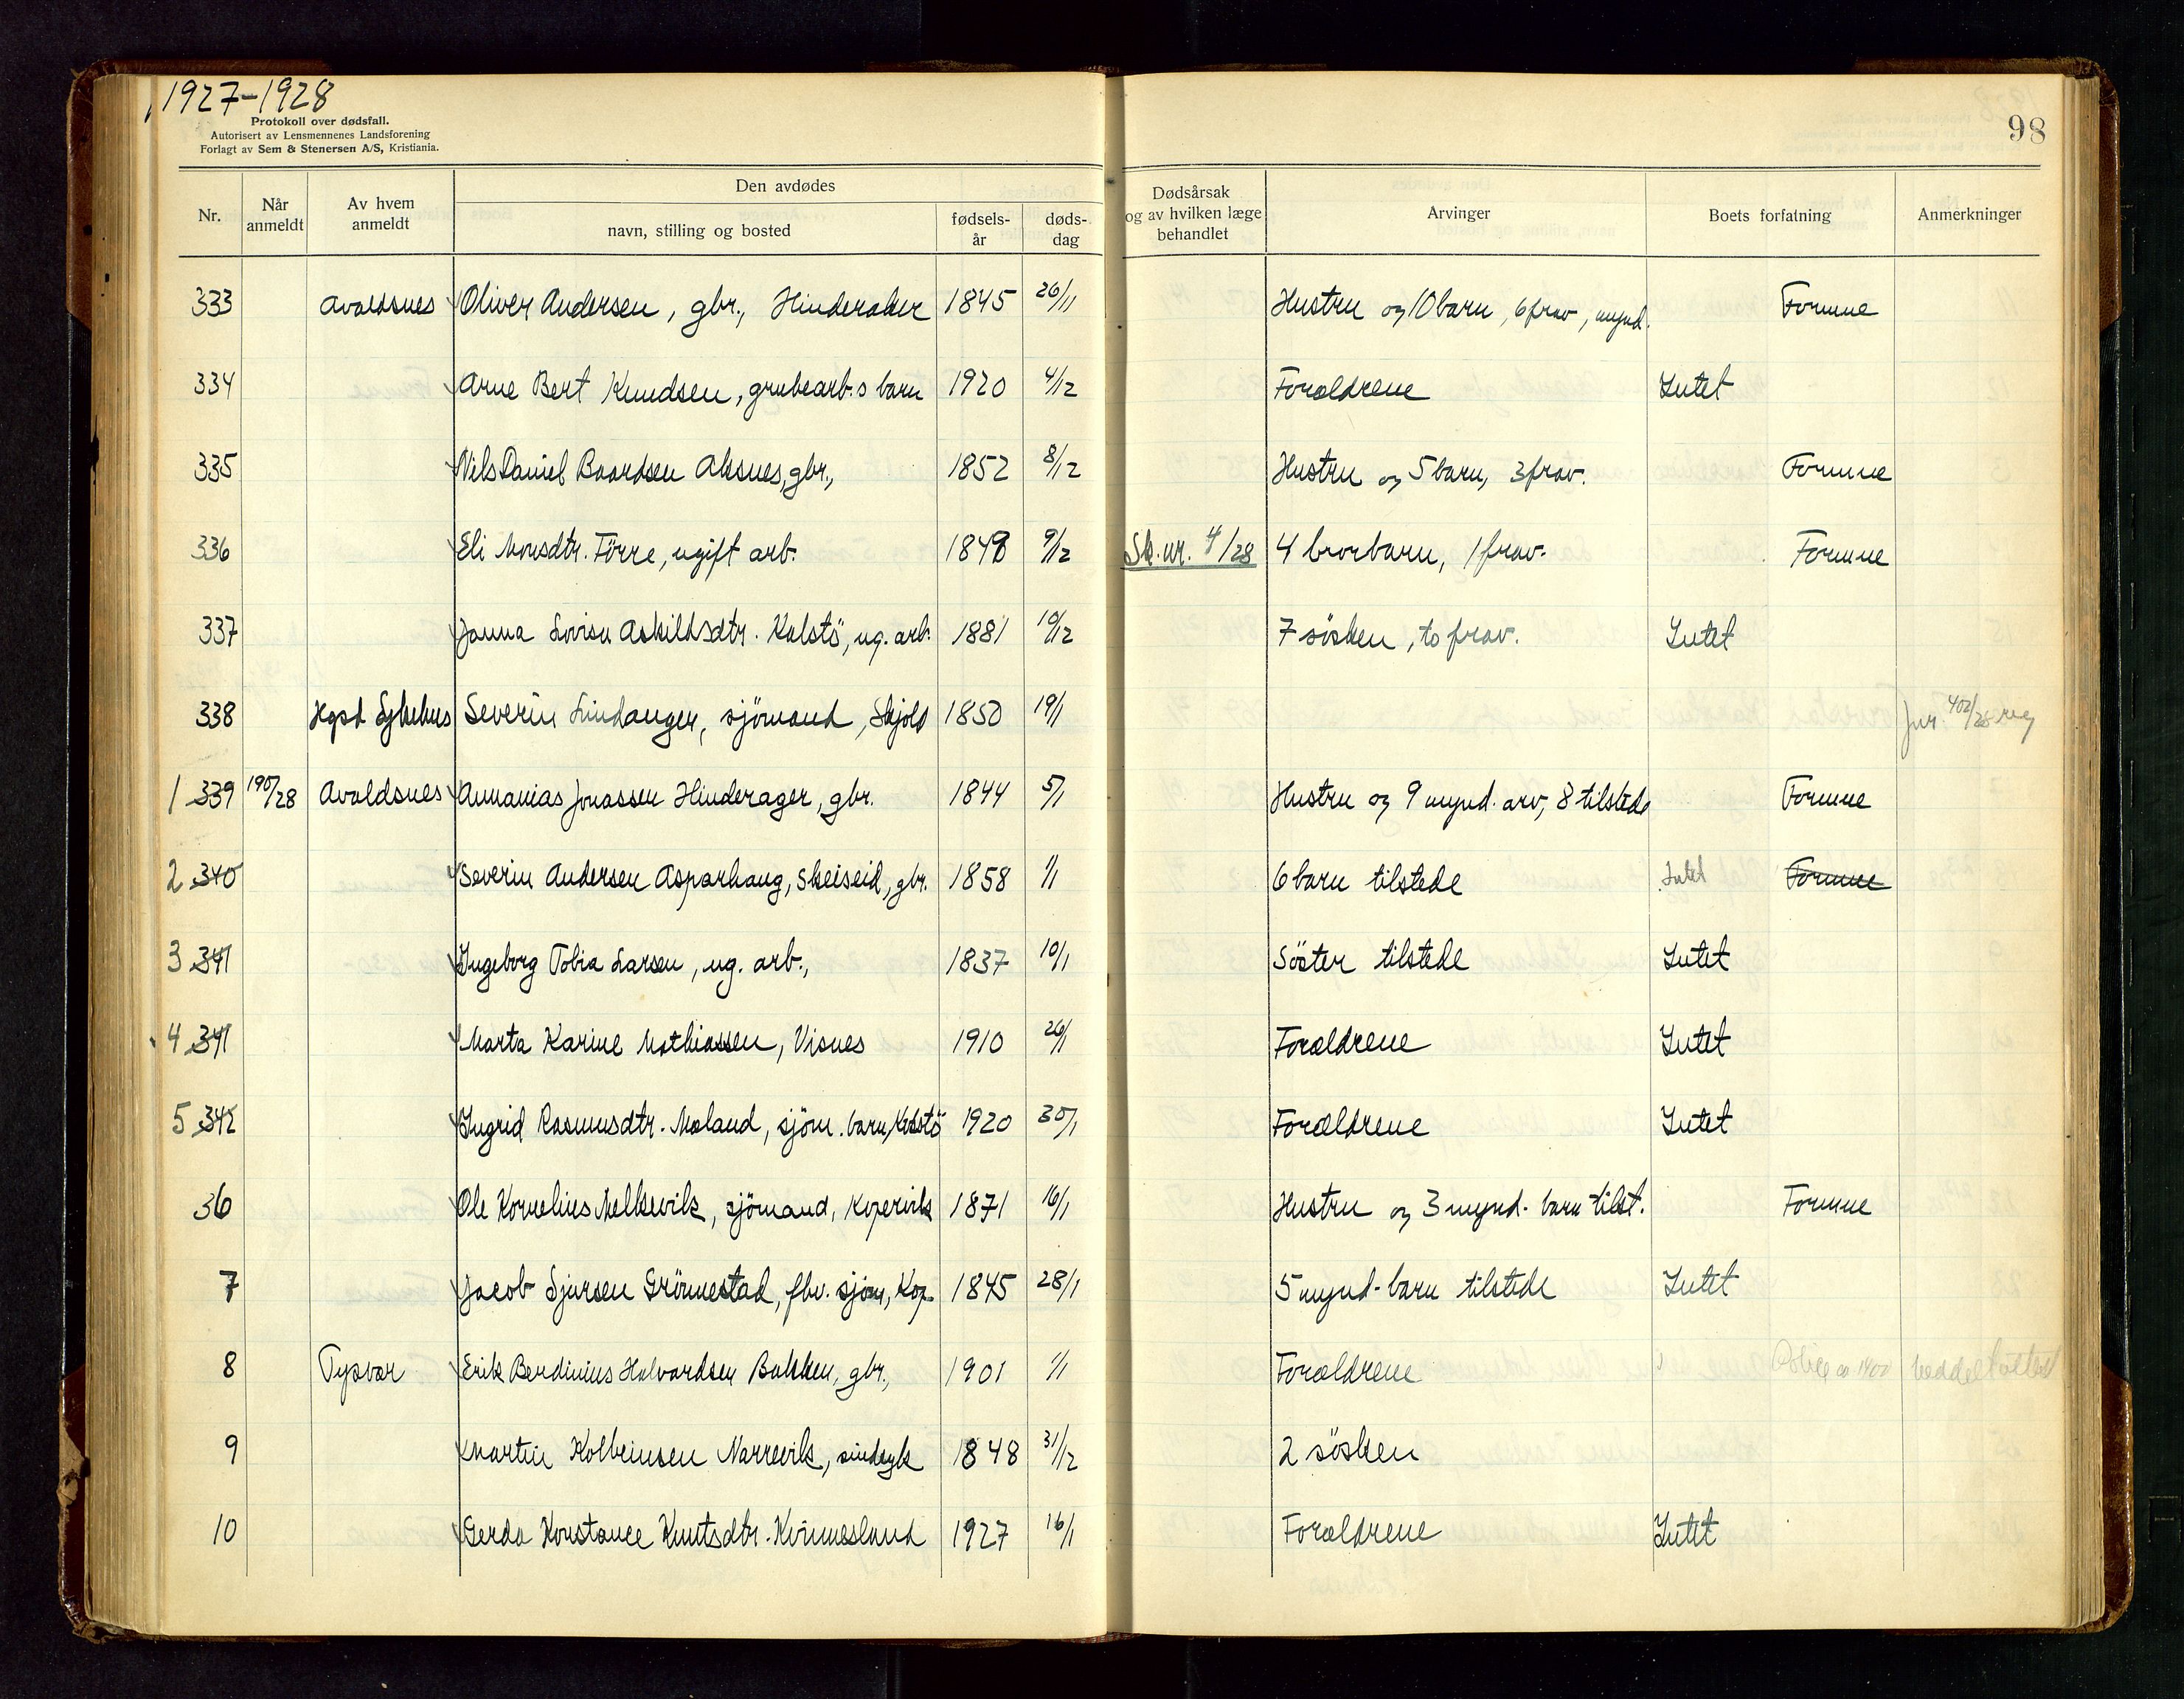 1927-1928
Protokoll over dødsfall.
Autorisert av Lensmennenes Landsforening
Forlagt av Sem & Stenersen A/S, Kristiania.
98
Nr. Når anmeldt Av hvem anmeldt Den avdødes navn, stilling og bosted fødsels-år døds-dag Dødsårsak og av hvilken læge behandlet Arvinger Boets forfatning Anmerkninger
333 Avaldsnes Oliver Andersen, gbr., Hinderaker 1845 26/11 Hustru og 10 barn, 6 frav, mynd. Formue
334 Arne Bert Knudsen, grubearb.s barn 1920 4/12 Forældrene Intet
335 Nils Daniel Baardsen Aksnes, gbr., 1852 8/12 Hustru og 5 barn, 3 frav. Formue
336 Eli Monsdtr. Förre, ugift arb. 1848 9/12 Sk. nr. 4/28 4 brorbarn, 1 frav. Formue
337 Janna Lovisa Askildsdtr. Kalstö, ug. arb. 1881 10/12 7 sösken, to frav. Intet
338 Hgsd Sykehus Severin Lindanger, sjömand, Skjold 1850 19/1 Jnr. 402/28
1 339 190/28 Avaldsnes Annanias Jonassen Hinderager, gbr. 1844 5/1 Hustru og 9 mynd. arv, 8 tilstede Formue
2 340 Severin Andersen Asparhaug, Skeiseid, gbr. 1858 1/1 6 barn tilstede Intet Formue
3 341 Ingeborg Tobia Larsen, ug. arb., 1837 10/1 Söster tilstede Intet
4 341 Marta Karine Mathiassen, Visnes 1910 26/1 Forældrene Intet
5 342 Ingrid Rasmusdtr. Mæland, sjöm. barn, Kolstö 1920 30/1 Forældrene Intet
36 Ole Kornelius Melkevik, sjömand, Kopervik 1871 16/1 Hustru og 3 mynd. barn tilst. Formue
7 Jacob Sjursen Grönnestad, fhv. sjöm, Kop. 1845 28/1 5 mynd. barn tilstede Intet
8 Tysvær Erik Berdinius Halvardsen Bakken, gbr., 1901 1/1 Forældrene
9 Martin Kolbeinsen Narrevik, sindsyk 1848 31/12 2 sösken
10 Gerda Konstance Knutsdtr. Kvinnesland 1927 16/1 Forældrene Intet